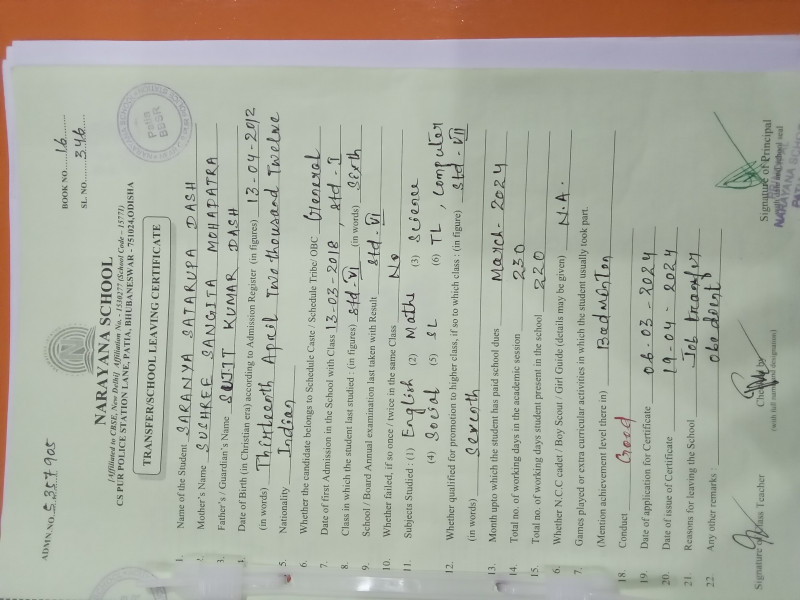 ADMN.NO. S357905
BOOK NO. 16
SL. NO. 346
NARAYANA SCHOOL
[Affiliated to CBSE, New Delhi] Affiliation No. - 1530277 (School Code - 15771)
CS PUR POLICE STATION LANE, PATIA, BHUBANESWAR - 751024,ODISHA
TRANSFER/SCHOOL LEAVING CERTIFICATE
Patia
BBSR
1. Name of the Student SARANYA SATARUPA DASH
2. Mother's Name SUSHREE SANGITA MOHAPATRA
3. Father's / Guardian's Name SUJIT KUMAR DASH
4. Date of Birth (in Christian era) according to Admission Register (in figures) 13-04-2012
(in words) Thirteenth April Two thousand Twelve
5. Nationality Indian
6. Whether the candidate belongs to Schedule Caste / Schedule Tribe/ OBC General
7. Date of first Admission in the School with Class 13-03-2018, Std - I
8. Class in which the student last studied : (in figures) Std-VI (in words) Sixth
9. School / Board Annual examination last taken with Result Std - VI
10. Whether failed, if so once / twice in the same Class No
11. Subjects Studied : (1) English (2) Maths (3) Science
(4) Social (5) SL (6) TL , Computer
12. Whether qualified for promotion to higher class, if so to which class : (in figure) Std - VII
(in words) Seventh
13. Month upto which the student has paid school dues March - 2024
14. Total no. of working days in the academic session 230
15. Total no. of working days student present in the school 220
6. Whether N.C.C cadet / Boy Scout / Girl Guide (details may be given) N.A.
7. Games played or extra curricular activities in which the student usually took part.
(Mention achievement level there in) Badminton
18. Conduct Good
19. Date of application for Certificate 06-03-2024
20. Date of issue of Certificate 19-04-2024
21. Reasons for leaving the School Job transfer
22. Any other remarks : Obedient
Signature of Class Teacher
Checked by
(with full name and designation)
Signature of Principal
NARAYANA SCHOOL